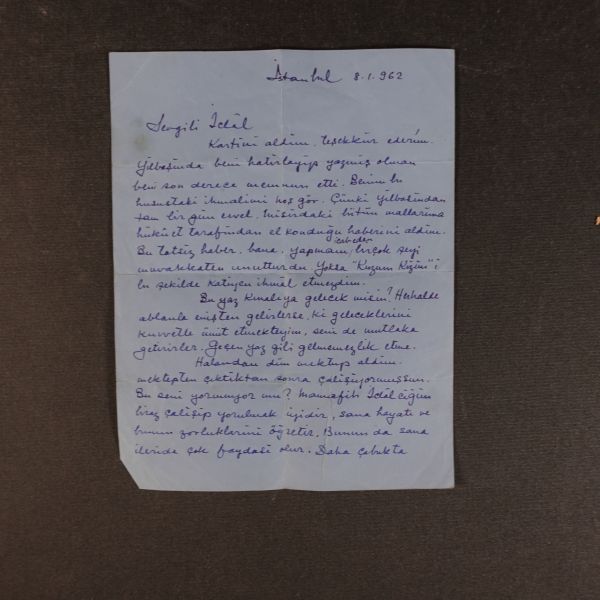 İstanbul 8.1.962
Sevgili İclâl
Kartini aldim, teşekkür ederim.
Yılbaşında beni hatırlayıp yazmış olman
beni son derece memnun etti. Benim bu
husustaki ihmalimi hoş gör. Çünki yılbaşından
tam bir gün evvel, Mısırdaki bütün mallarıma
hükûet tarafından el konduğu haberini aldım.
Bu tatsız haber, bana, yapmam icabeden birçok şeyi
muvakkaten unutturdu. Yoksa "Kuzum Kızım" ı
bu şekilde katiyen ihmâl etmezdim.
Bu yaz Kınalıya gelecek misin? Herhalde
ablanla enişten gelirlerse, ki geleceklerini
kuvvetle ümit etmekteyim, seni de mutlaka
getirirler. Geçen yaz gibi gelmemezlik etme.
Halandan dün mektup aldım.
mektepten çıktıktan sonra çalışıyormuşsun.
Bu seni yormuyor mu? Mamafih İclâlciğim
biraz çalışıp yorulmak iyidir, sana hayatı ve
bunun zorluklarını öğretir. Bunun da sana
ileride çok faydası olur. Daha çabukta